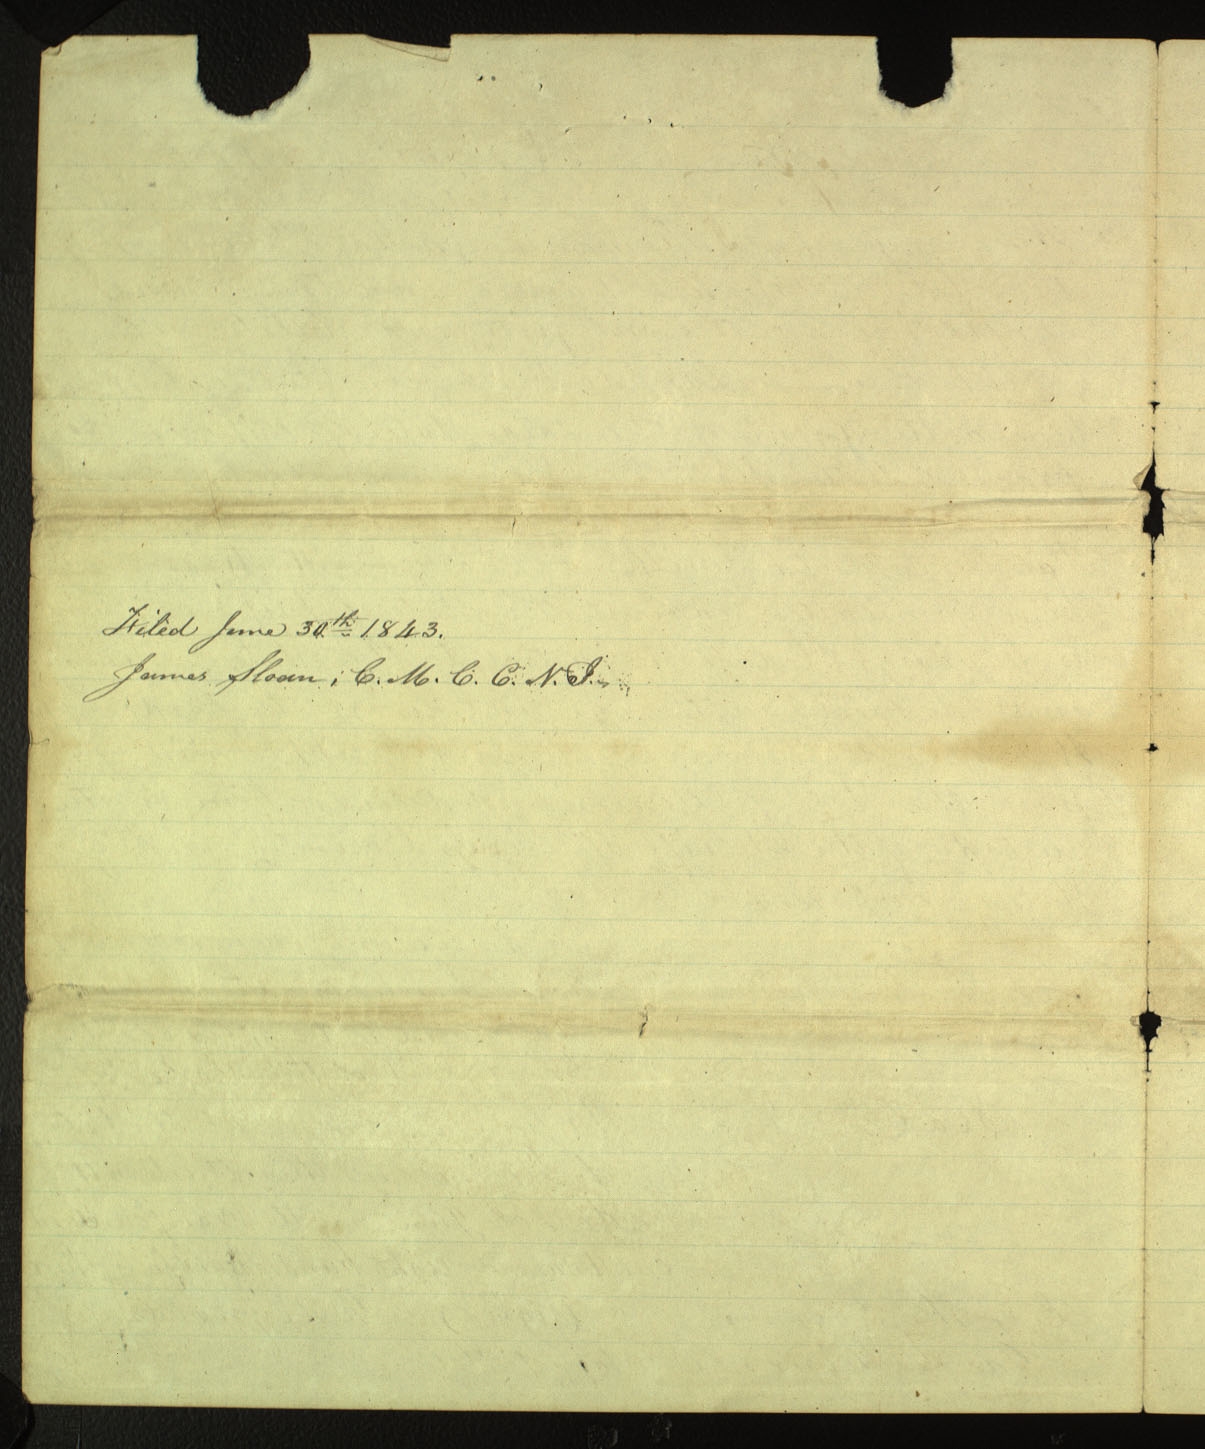 Filed June 30th 1843.
James Sloan, C. M. C. C. N. I.